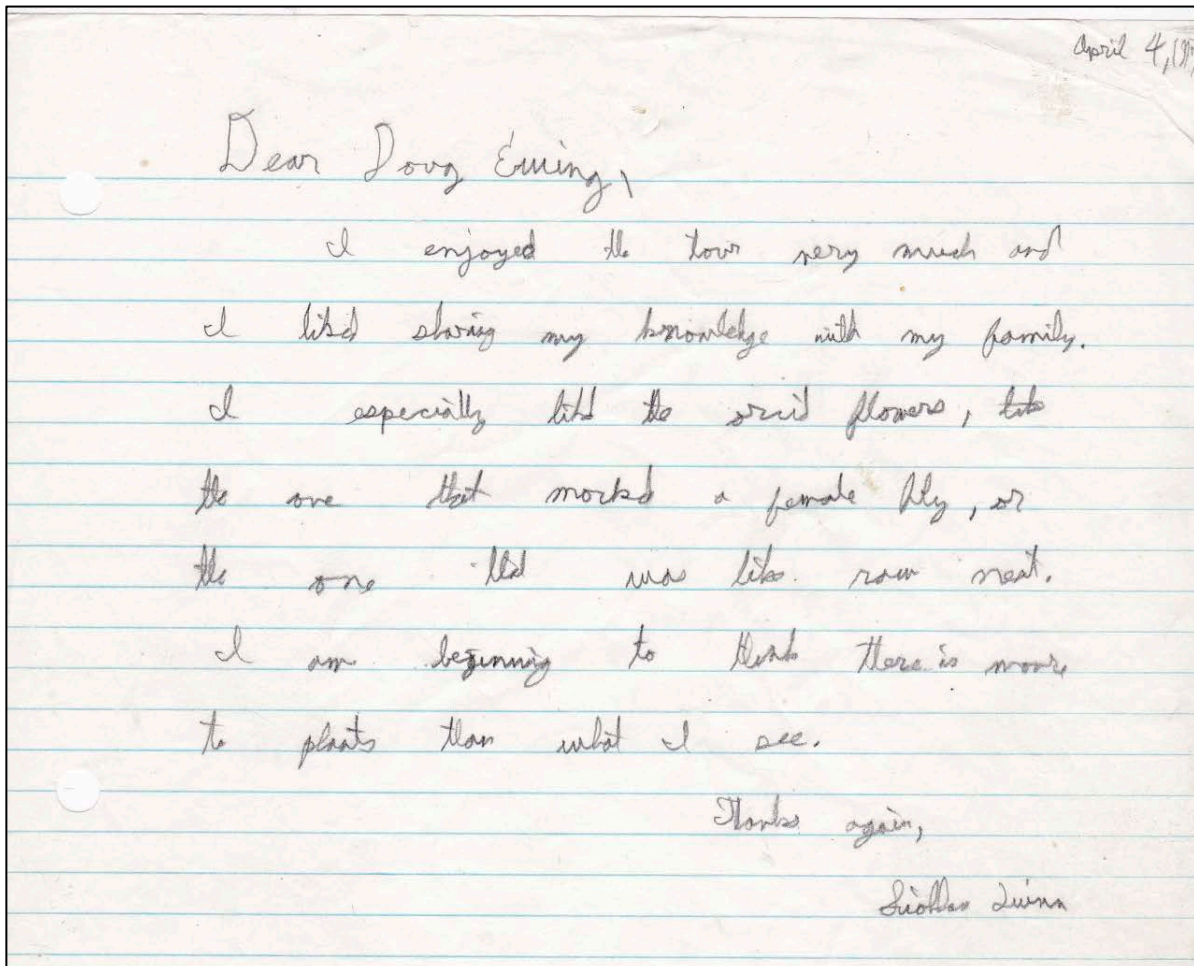 April 4,
Dear Doug Ewing,
I enjoyed the tour very much and
I liked sharing my knowledge with my family.
I especially liked the orcid flowers, like
the one that mocked a female fly, or
the one that was like raw meat.
I am beginning to think there is more
to plants than what I see.
Thanks again,
Quinn